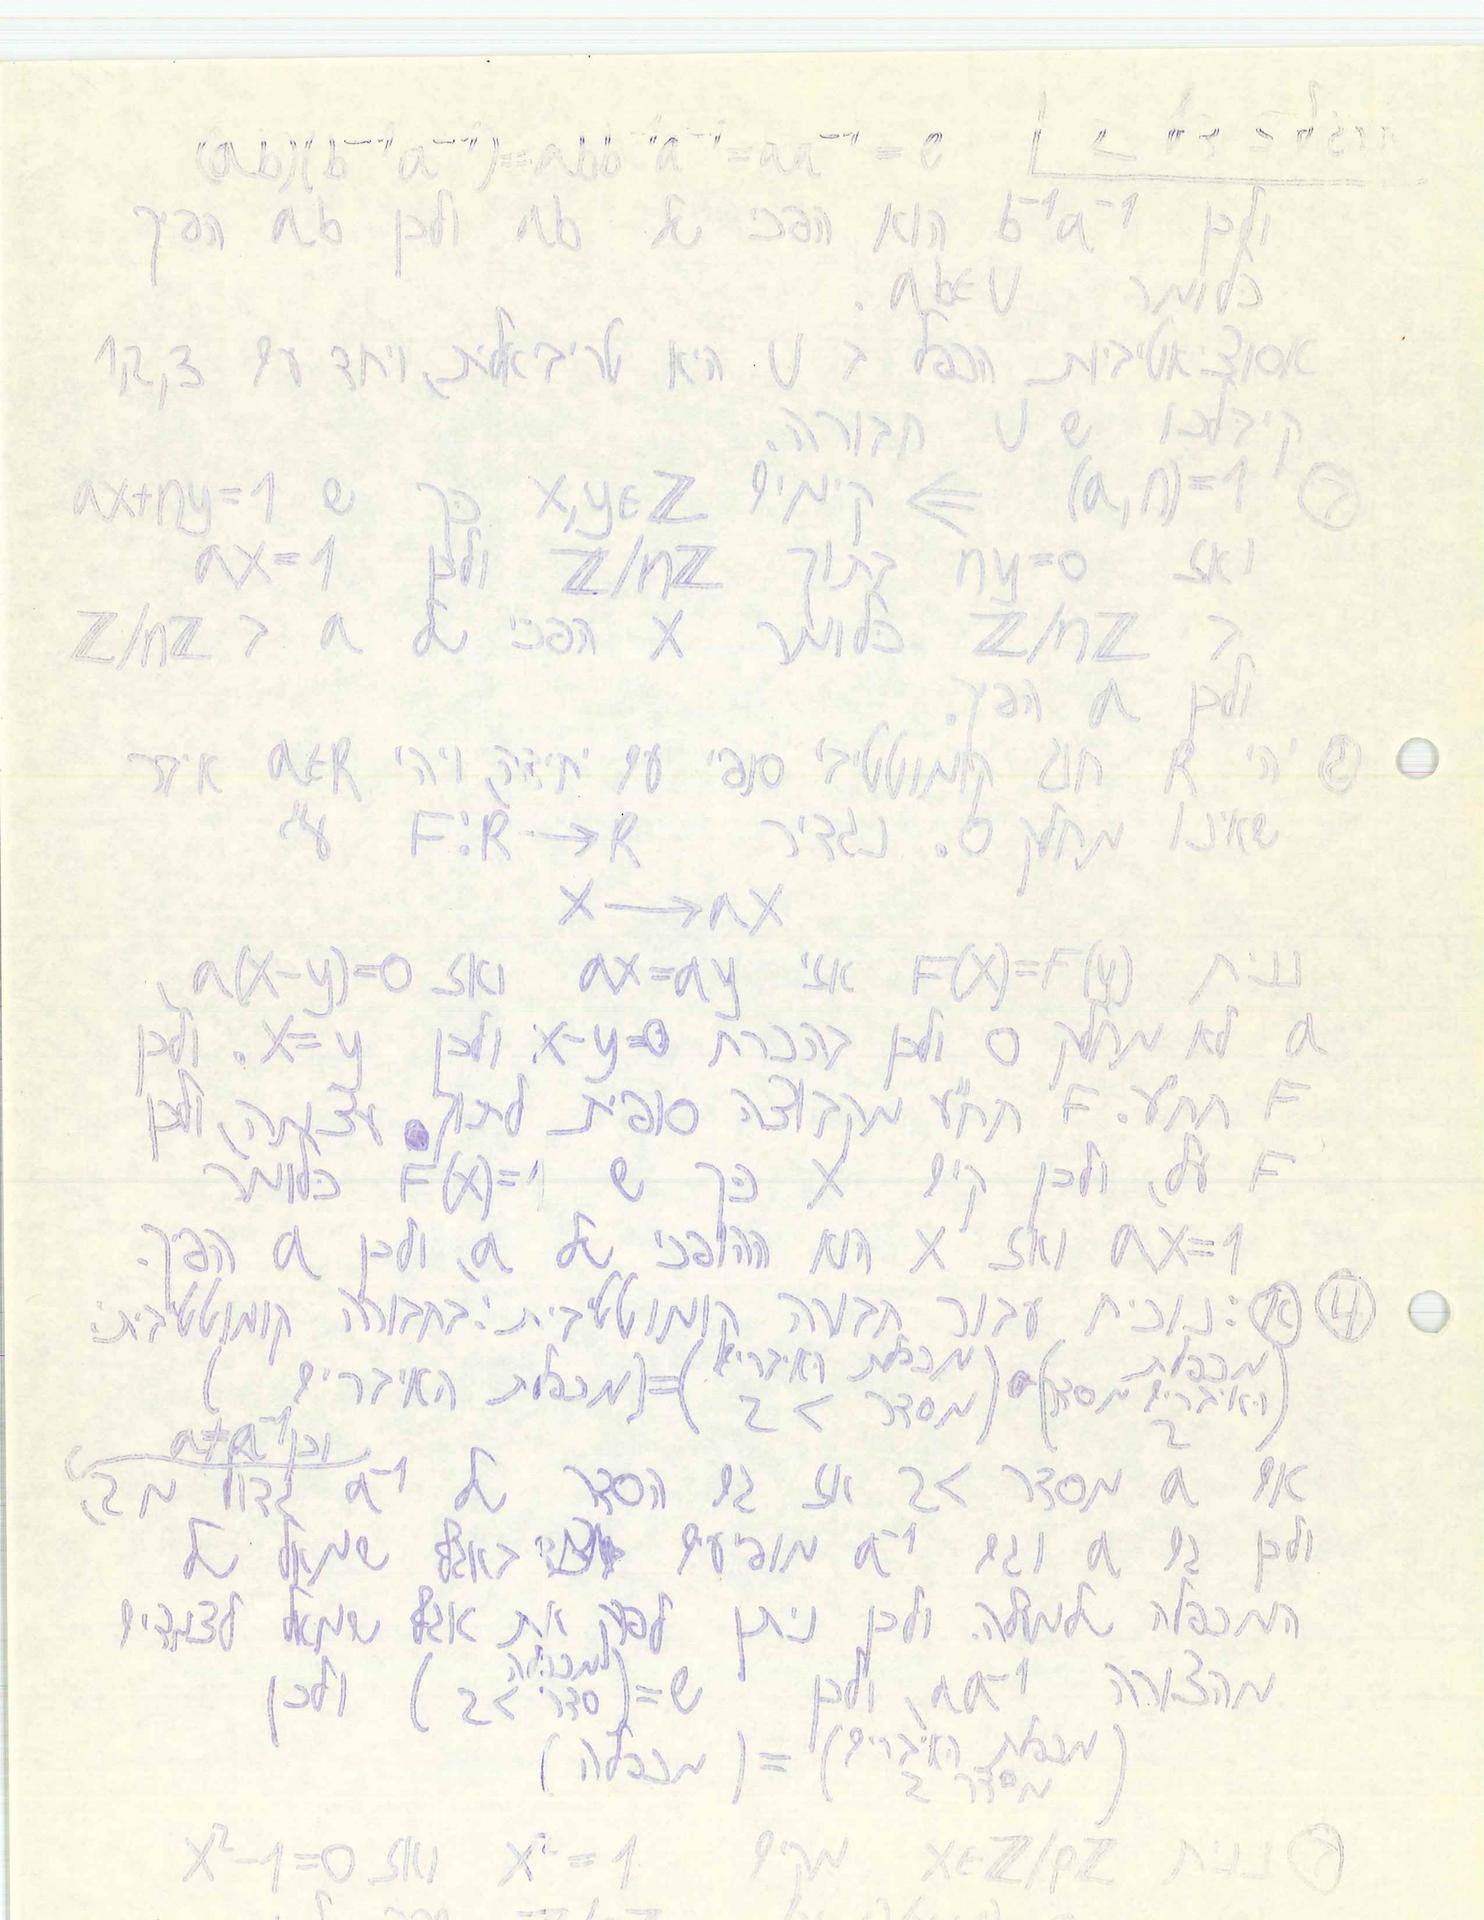 (ab)(b⁻¹a⁻¹)=abb⁻¹a⁻¹=aa⁻¹=e
ולכן b⁻¹a⁻¹ הוא הפכי של ab ולכן ab הפיך
כלומר ab∈U.
אסוציאטיביות הכפל ב U היא טריביאלית, ויחד עם 1,2,3
קיבלנו ש U חבורה.
(a,n)=1 ⇐ קיימים x,y∈ℤ כך ש ax+ny=1
ואז ny=0 בתוך ℤ/nℤ ולכן ax=1
ב ℤ/nℤ כלומר x הפכי של a ב ℤ/nℤ
ולכן a הפיך.
ג יהי R חוג קומוטטיבי סופי עם יחידה, ויהי a∈R איבר
שאינו מחלק 0. נגדיר F:R→R ע"י
x→ax
נניח F(x)=F(y) אזי ax=ay ואז a(x-y)=0,
a לא מחלק 0 ולכן בהכרח x-y=0 ולכן x=y. ולכן
F חח"ע. F חח"ע מקבוצה סופית לתוך עצמה, ולכן
F על, ולכן קיים x כך ש F(x)=1 כלומר
ax=1 ואז x הוא ההופכי של a, ולכן a הפיך.
④ א: נוכיח עבור חבורה קומוטטיבית: בחבורה קומוטטיבית:
(מכפלת האיברים מסדר 2)•(מכפלת האיברים מסדר > 2)=(מכפלת האיברים)
וכן a≠a⁻¹
אם a מסדר >2 אז גם הסדר של a⁻¹ גדול מ 2,
ולכן גם a וגם a⁻¹ מופיעים באגף שמאל של
המכפלה שלמעלה. ולכן ניתן לפרק את אגף שמאל לצמדים
מהצורה aa⁻¹, ולכן e=(מכפלה סדר > 2) ולכן
(מכפלת האיברים מסדר 2)=(מכפלה)
ב נניח x∈ℤ/pℤ מקיים x²=1 ואז x²-1=0